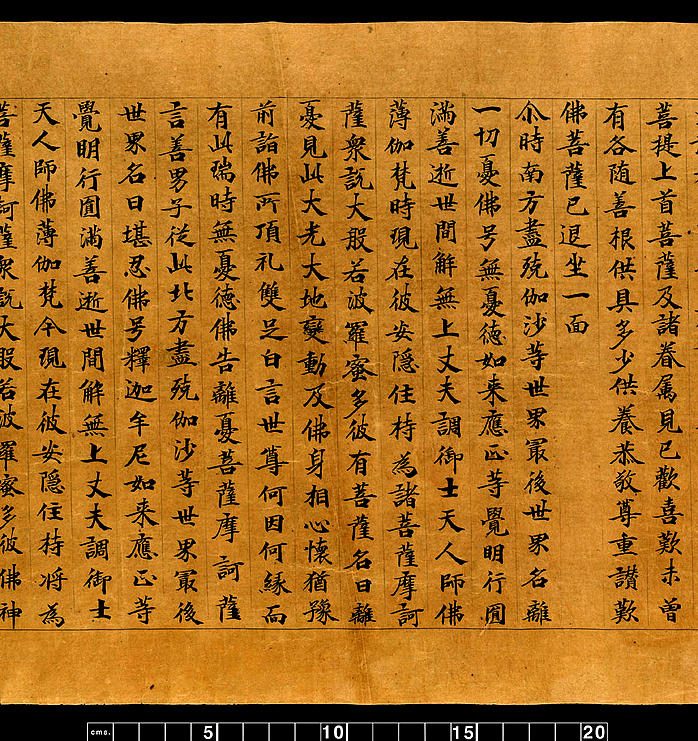 菩提上首菩薩及諸眷属見已歡喜歎未曽
有各随善根供具多少供養恭敬尊重讃歎
佛菩薩已退坐一面
尒時南方盡殑伽沙等世界最後世界名離
一切憂佛号無憂德如来應正等覺明行圓
滿善逝世間解無上丈夫調御士天人師佛
薄伽梵時現在彼安隱住持為諸菩薩摩訶
薩衆說大般若波羅蜜多彼有菩薩名曰離
憂見此大光大地變動及佛身相心懷猶豫
前詣佛所頂礼雙足白言世尊何因何縁而
有此瑞時無憂德佛告離憂菩薩摩訶薩
言善男子從此北方盡殑伽沙等世界最後
世界名曰堪忍佛号釋迦牟尼如来應正等
覺明行圓滿善逝世間解無上丈夫調御士
天人師佛薄伽梵今現在彼安隱住持将為
菩薩摩訶薩衆說大般若波羅蜜多彼佛神
cms. 5 10 15 20